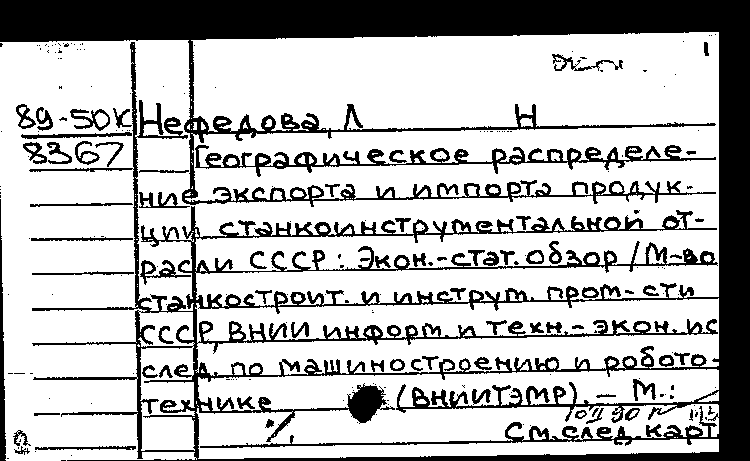 1
Экон.
89-50К Нефедова, Л Н
8367 Географическое распределе-
ние экспорта и импорта продук-
ции станкоинструментальной от-
расли СССР: Экон.-стат. обзор / М-во
станкостроит. и инструм. пром-сти
СССР, ВНИИ информ. и техн.-экон. ис
след. по машиностроению и робото-
технике (ВНИИТЭМР). — М.:
См. след. карт